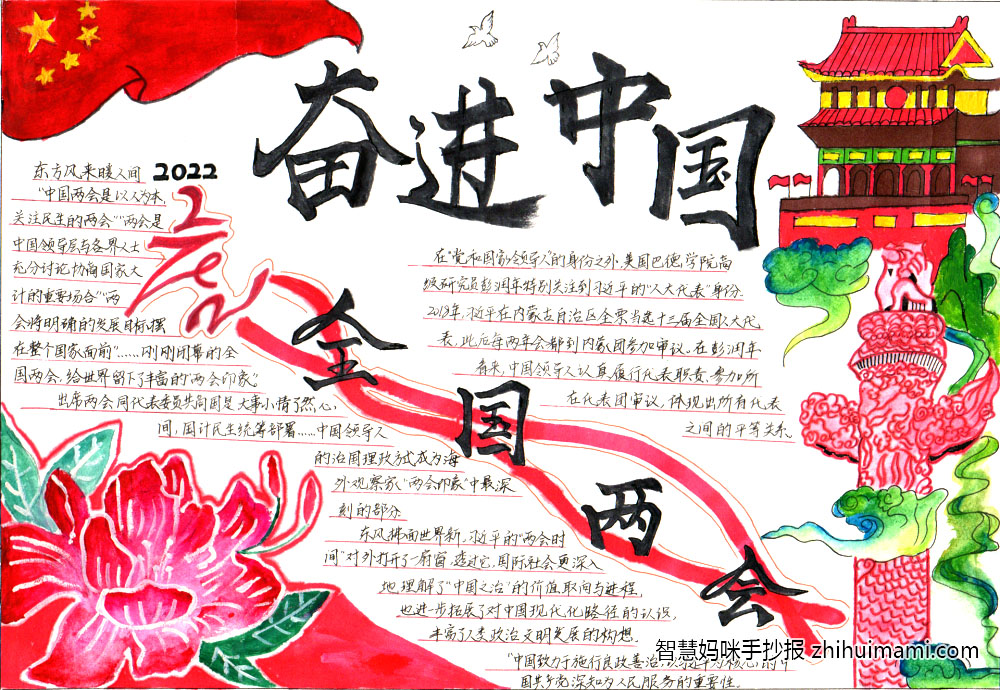 奋进中国
东方风来暖人间
2022
2022
"中国两会是以人为本,
关注民生的两会""两会是
中国领导层与各界人士
充分讨论协商国家大
计的重要场合""两
会将明确的发展目标摆
在整个国家面前"……刚刚闭幕的全
国两会,给世界留下了丰富的"两会印象"。
出席两会同代表委员共商国是大事小情了然心
间,国计民生统筹部署……中国领导人
的治国理政方式成为海
外观察家"两会印象"中最深
刻的部分
东风拂面世界新,习近平的"两会时
间"对外打开了一扇窗,透过它,国际社会更深入
地理解了"中国之治"的价值取向与进程,
也进一步拓展了对中国现代化路径的认识,
丰富了人类政治文明发展的构想。
"中国致力于施行民政善治,以
国共产党深知为人民服务的重要性。
在"党和国家领导人"的身份之外,美国巴德学院高
级研究员彭润年特别关注到习近平的"人大代表"身份
2018年,习近平在内蒙古自治区全票当选十三届全国人大代
表,此后每两年会都到内蒙团参加审议,在彭润年
看来,中国领导人认真履行代表职责,参加所
在代表团审议,体现出所有代表
之间的平等关系。
全国两会
智慧妈咪手抄报 zhihuimami.com